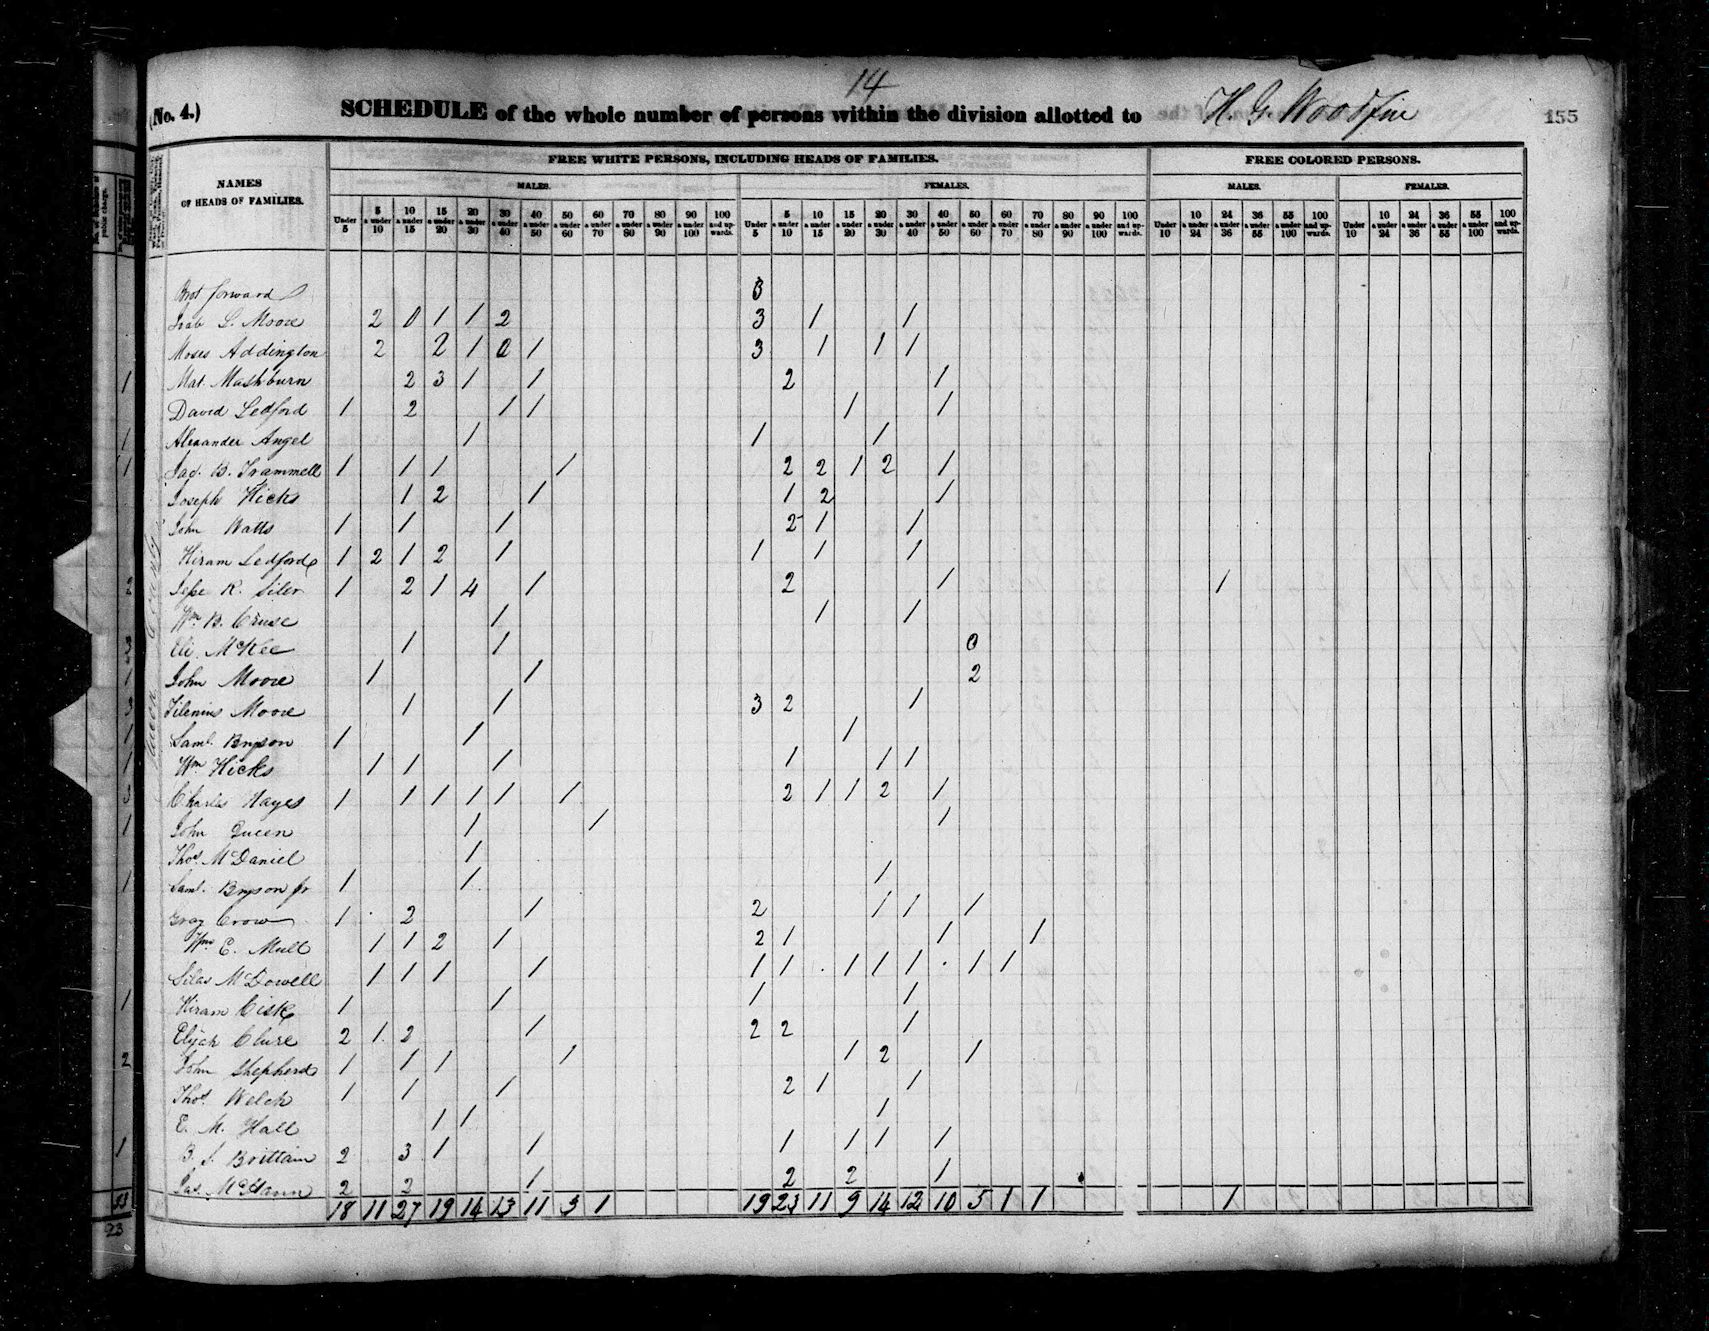 14
(No. 4.) SCHEDULE of the whole number of persons within the division allotted to H. G. Woodfin 155
FREE WHITE PERSONS, INCLUDING HEADS OF FAMILIES. FREE COLORED PERSONS.
NAMES OF HEADS OF FAMILIES. MALES. FEMALES. MALES. FEMALES.
Under 5 5 & under 10 10 & under 15 15 & under 20 20 & under 30 30 & under 40 40 & under 50 50 & under 60 60 & under 70 70 & under 80 80 & under 90 90 & under 100 100 and upwards. Under 5 5 & under 10 10 & under 15 15 & under 20 20 & under 30 30 & under 40 40 & under 50 50 & under 60 60 & under 70 70 & under 80 80 & under 90 90 & under 100 100 and upwards. Under 10 10 & under 24 24 & under 36 36 & under 55 55 & under 100 100 and upwards. Under 10 10 & under 24 24 & under 36 36 & under 55 55 & under 100 100 and upwards.
Brot forward 3
L. Moore 2 0 1 1 2 3 1 1
Moses Addington 2 2 1 0 1 3 1 1 1
1 Mat. Mashburn 2 3 1 1 2 1
David Ledford 1 2 1 1 1 1
1 Alexander Angel 1 1 1
1 Jac. B. Trammell 1 1 1 1 2 2 1 2 1
Joseph Hicks 1 2 1 1 2 1
John Watts 1 1 1 2 1 1
Hiram Ledford 1 2 1 2 1 1 1 1
2 Jesse R. Siler 1 2 1 4 1 2 1 1
Wm B. Cruse 1 1 1
3 Eli McKee 1 1 0
1 John Moore 1 1 2
3 Moore 1 1 3 2 1
1 Saml. Bryson 1 1 1
1 Wm Hicks 1 1 1 1 1 1
3 Charles Hayes 1 1 1 1 1 1 2 1 1 2 1
1 John Queen 1 1 1
Thos. McDaniel 1
1 Saml. Bryson jr 1 1 1
Gray Crow 1 2 1 2 1 1 1
Wm E. Mull 1 1 2 1 2 1 1 1
Silas McDowell 1 1 1 1 1 1 1 1 1 1 1
1 Hiram Cisk 1 1 1 1
Elijah Clure 2 1 2 1 2 2 1
2 John Shepherd 1 1 1 1 1 2 1
Thos. Welch 1 1 1 2 1 1
E. M. Hall 1 1 1
1 B. S. Brittain 2 3 1 1 1 1 1 1
Jas. 2 2 1 2 2 1
33 18 11 27 19 14 13 11 3 1 19 23 11 9 14 12 10 5 1 1 1
23